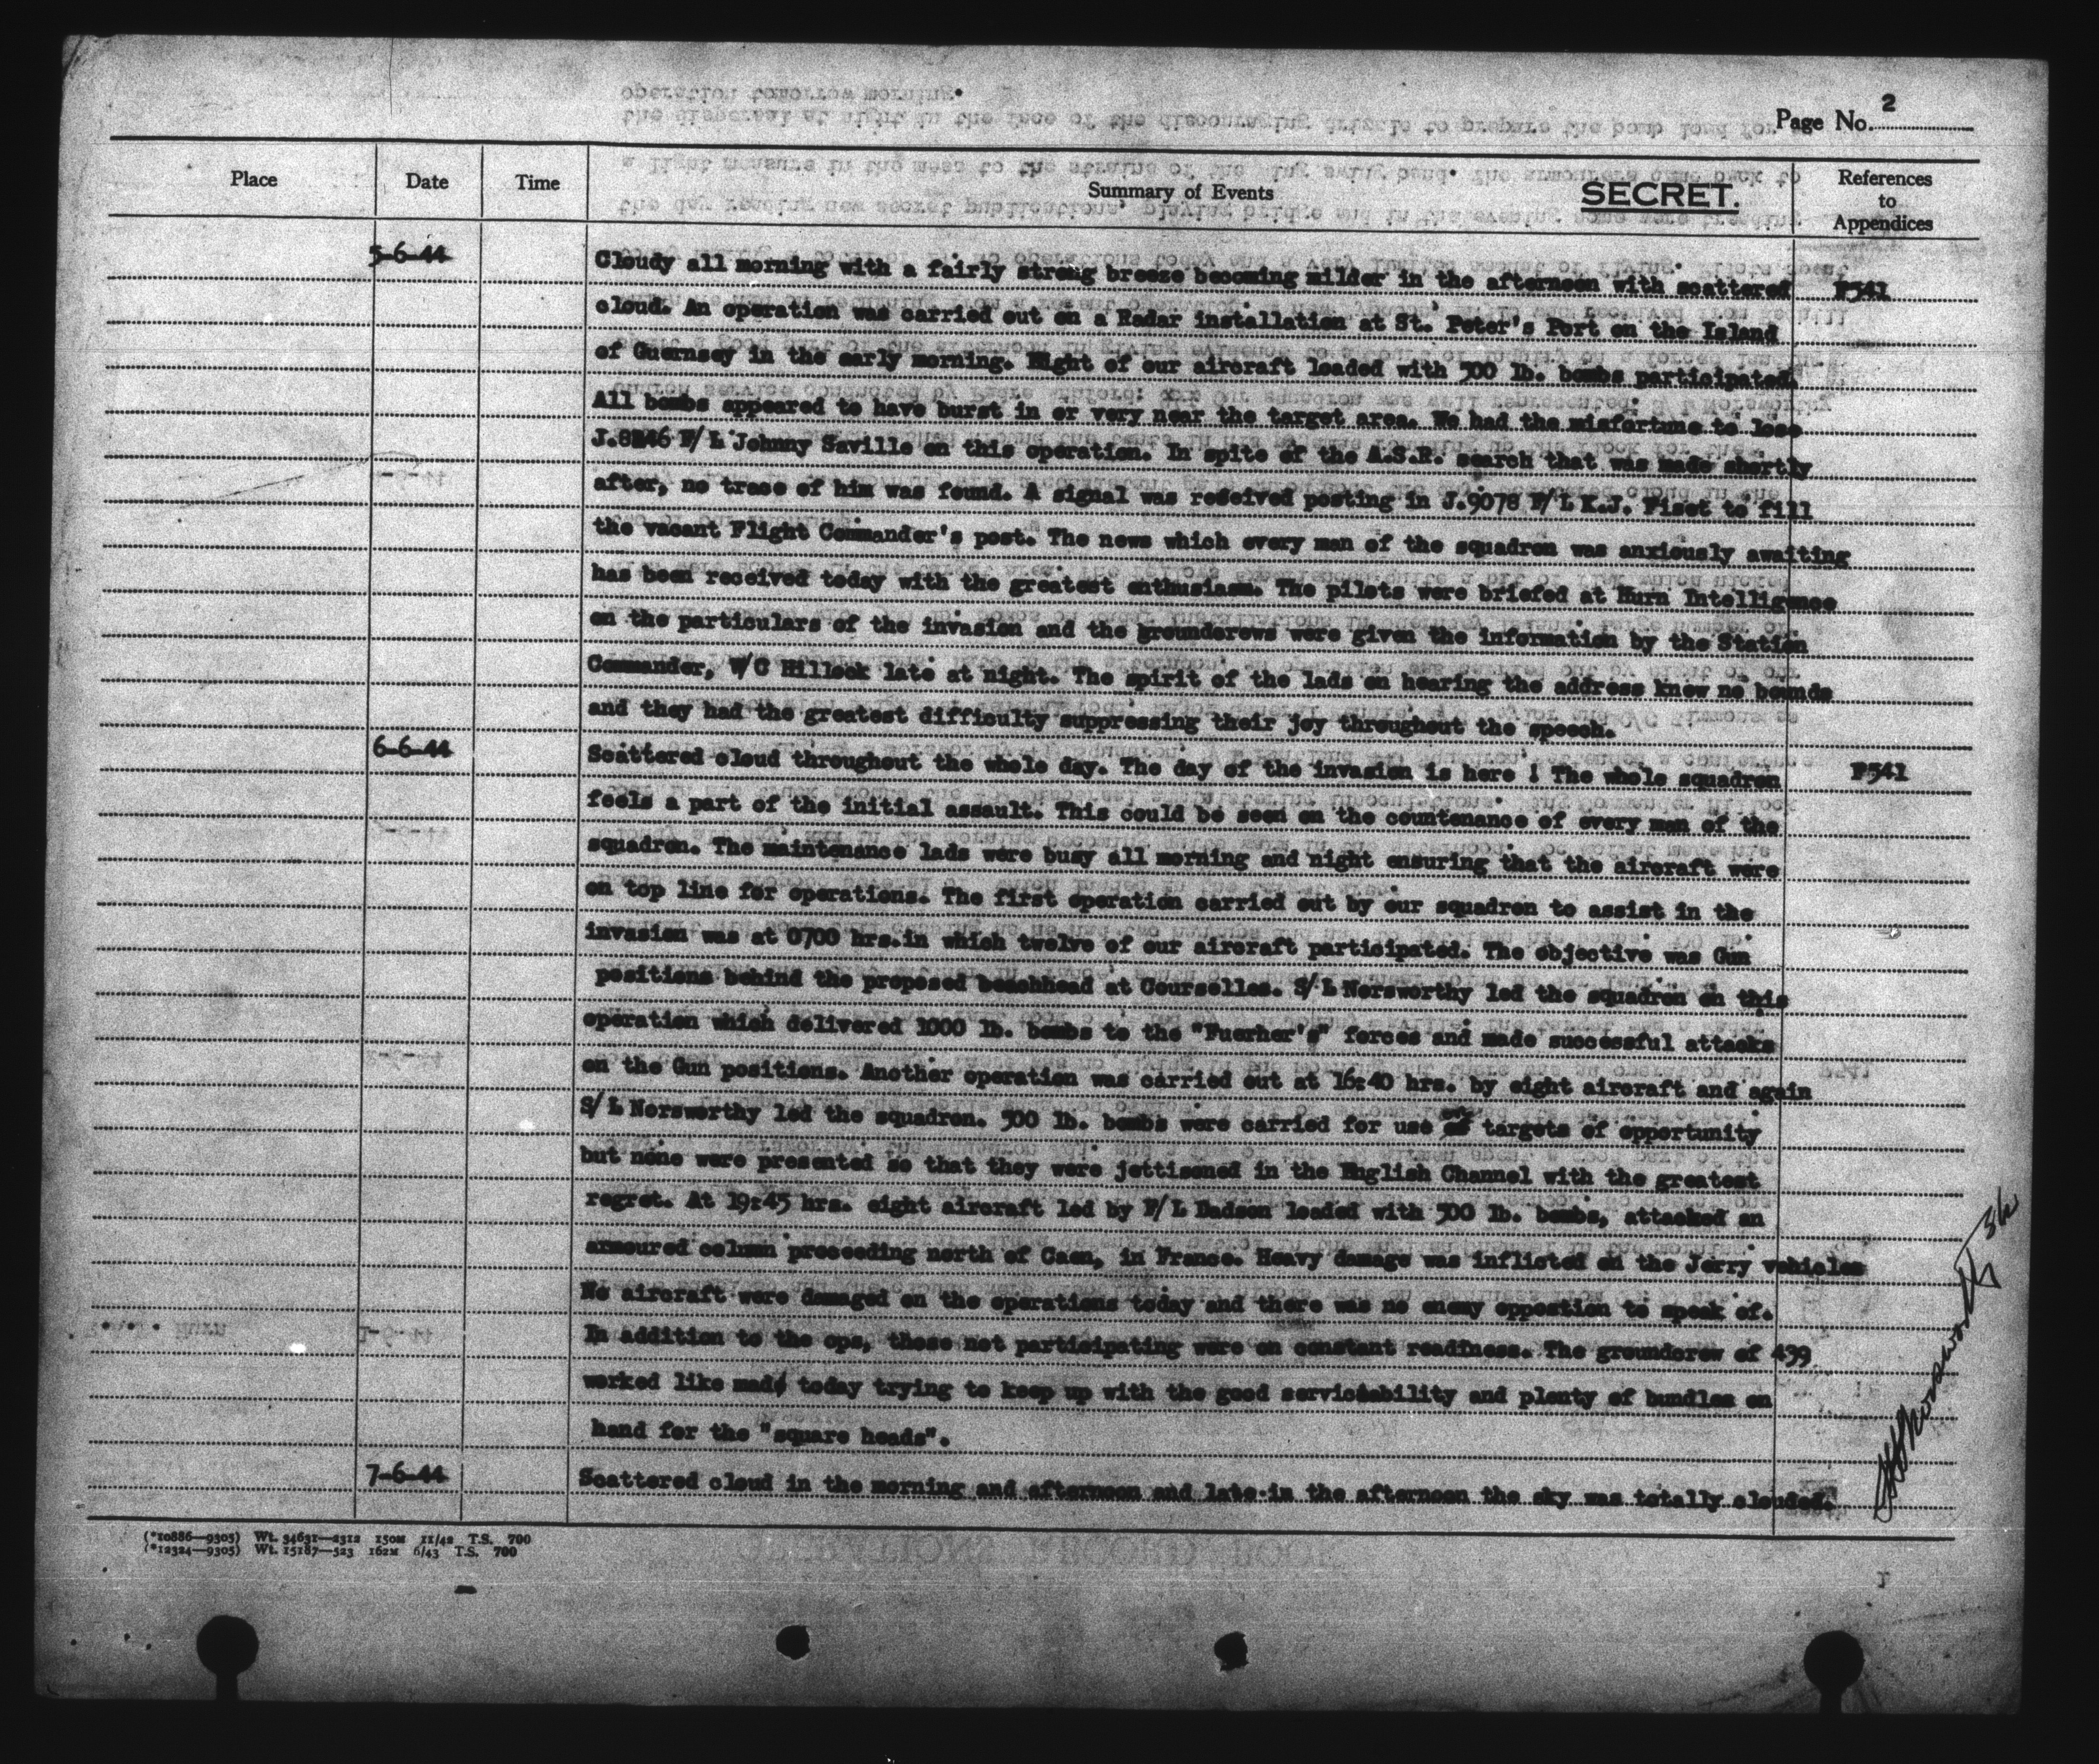 Page No. 2
Place Date Time Summary of Events SECRET. References to Appendices
5-6-44 Cloudy all morning with a fairly strong breeze becoming milder in the afternoon with scattered F541
cloud. An operation was carried out on a Radar installation at St. Peter's Port on the Island
of Guernsey in the early morning. Eight of our aircraft loaded with 500 lb. bombs participated.
All bombs appeared to have burst in or very near the target area. We had the misfortune to lose
F/L Johnny Saville on this operation. In spite of the A.S.R. search that was made shortly
after, no trace of him was found. A signal was received posting in J.9078 F/L K.J. Fiset to fill
the vacant Flight Commander's post. The news which every man of the squadron was anxiously awaiting
has been received today with the greatest enthusiasm. The pilots were briefed at Hurn Intelligence
on the particulars of the invasion and the groundcrews were given the information by the Station
Commander, W/C Hillock late at night. The spirit of the lads on hearing the address knew no bounds
and they had the greatest difficulty suppressing their joy throughout the speech.
6-6-44 Scattered cloud throughout the whole day. The day of the invasion is here ! The whole squadron F541
feels a part of the initial assault. This could be seen on the countenance of every man of the
squadron. The maintenance lads were busy all morning and night ensuring that the aircraft were
on top line for operations. The first operation carried out by our squadron to assist in the
invasion was at 0700 hrs.in which twelve of our aircraft participated. The objective was Gun
positions behind the proposed beachhead at Courselles. S/L Norsworthy led the squadron on this
operation which delivered 1000 lb. bombs to the "Fuerher's" forces and made successful attacks
on the Gun positions. Another operation was carried out at 16:40 hrs. by eight aircraft and again
S/L Norsworthy led the squadron. 500 lb. bombs were carried for use on targets of opportunity
but none were presented so that they were jettisoned in the English Channel with the greatest
regret. At 19:45 hrs. eight aircraft led by F/L Dadson loaded with 500 lb. bombs, attacked an
armoured column proceeding north of Caen, in France. Heavy damage was inflicted on the Jerry vehicles
No aircraft were damaged on the operations today and there was no enemy oppostion to speak of.
In addition to the ops, those not participating were on constant readiness. The groundcrew of 439
worked like mad today trying to keep up with the good serviceability and plenty of bundles on
hand for the "square heads".
7-6-44 Scattered cloud in the morning and afternoon and late in the afternoon the sky was totally clouded.
(*10886—9305) Wt. 34631—2312 150M 11/42 T.S. 700
(*12324—9305) Wt. 15187—523 162M 6/43 T.S. 700